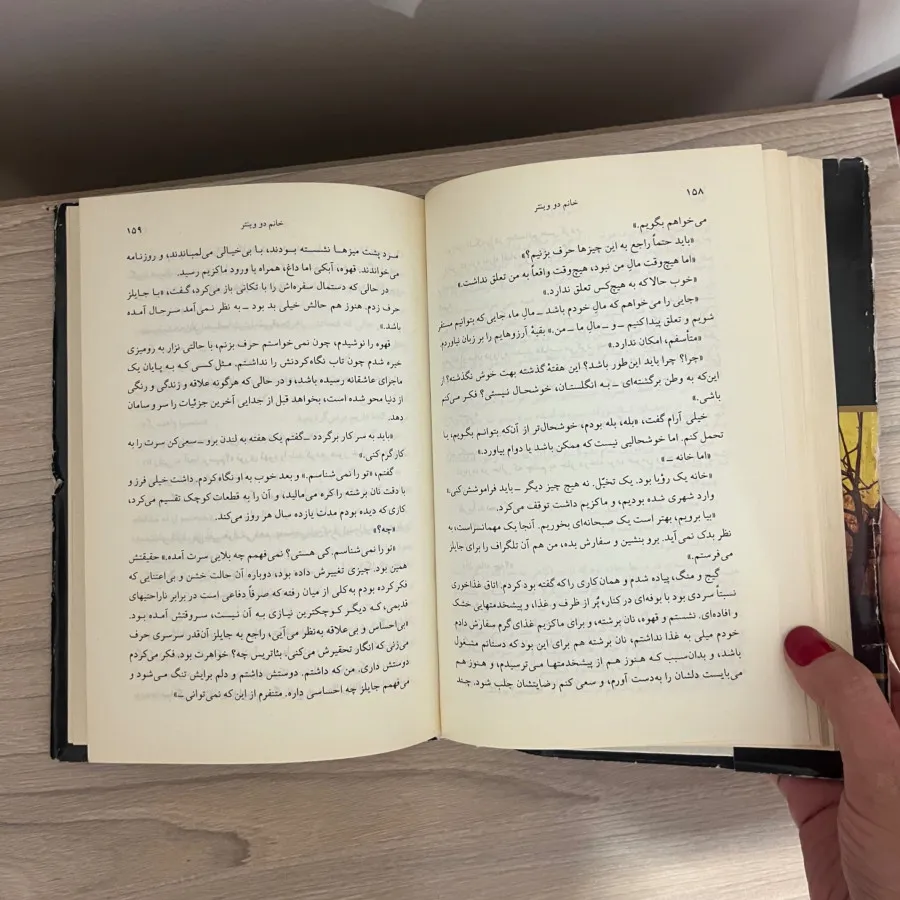 ۱۵۸
خانم دو وینتر
می‌خواهم بگویم.»
«باید حتماً راجع به این چیزها حرف بزنیم؟»
«اما هیچ‌وقت مالِ من نبود، هیچ‌وقت واقعاً به من تعلق نداشت.»
«خوب حالا که به هیچ‌کس تعلق ندارد.»
«جایی را می‌خواهم که مالِ خودم باشد ــ مالِ ما، جایی که بتوانیم مستقر
شویم و تعلق پیدا کنیم ــ و ــ مالِ ما ــ من.» بقیهٔ آرزوهایم را بر زبان نیاوردم.
«متأسفم، امکان ندارد.»
«چرا؟ چرا باید این‌طور باشد؟ این هفتهٔ گذشته بهت خوش نگذشته؟ از
این‌که به وطن برگشته‌ای ــ به انگلستان، خوشحال نیستی؟ فکر می‌کنم
باشی.»
خیلی آرام گفت، «بله، بله بودم، خوشحال‌تر از آنکه بتوانم بگویم، یا
تحمل کنم. اما خوشحالیی نیست که ممکن باشد یا دوام بیاورد.»
«اما خانه ــ»
«خانه یک رؤیا بود. یک تخیّل. نه هیچ چیز دیگر ــ باید فراموشش کنی.»
وارد شهری شده بودیم، و ماکزیم داشت توقف می‌کرد.
«بیا برویم، بهتر است یک صبحانه‌ای بخوریم. آنجا یک مهمانسراست، به
نظر بدک نمی‌آید. برو بنشین و سفارش بده، من هم آن تلگراف را برای جایلز
می‌فرستم.»
گیج و منگ، پیاده شدم و همان کاری را که گفته بود کردم. اتاق غذاخوری
نسبتاً سردی بود با بوفه‌ای در کنار، پُر از ظرف و غذا، و پیشخدمتهایی خشک
و افاده‌ای. نشستم و قهوه، نان برشته، و برای ماکزیم غذای گرم سفارش دادم
خودم میلی به غذا نداشتم، نان برشته هم برای این بود که دستانم مشغول
باشد، و بدان‌سبب که هنوز هم از پیشخدمتها می‌ترسیدم، و هنوز هم
می‌بایست دلشان را به‌دست آورم، و سعی کنم رضایتشان جلب شود. چند
۱۵۹
خانم دو وینتر
مرد پشت میزها نشسته بودند، با بی‌خیالی می‌لمباندند، و روزنامه
می‌خواندند. قهوه، آبکی اما داغ، همراه با ورود ماکزیم رسید.
در حالی که دستمال سفره‌اش را با تکانی باز می‌کرد، گفت، «با جایلز
حرف زدم. هنوز هم حالش خیلی بد بود ــ به نظر نمی‌آمد سرحال آمده
باشد.»
قهوه را نوشیدم، چون نمی‌خواستم حرف بزنم، با حالتی نزار به رومیزی
خیره شدم چون تاب نگاه‌کردنش را نداشتم. مثل کسی که به پایان یک
ماجرای عاشقانه رسیده باشد، و در حالی که هرگونه علاقه و زندگی و رنگی
از دنیا محو شده است، بخواهد قبل از جدایی آخرین جزئیات را سر و سامان
دهد.
«باید به سر کار برگردد ــ گفتم یک هفته به لندن برو ــ سعی کن سرت را به
کار گرم کنی.»
گفتم، «تو را نمی‌شناسم.» و بعد خوب به او نگاه کردم. داشت خیلی فرز و
با دقت نان برشته را کره می‌مالید، و آن را به قطعات کوچک تقسیم می‌کرد،
کاری که دیده بودم مدت یازده سال هر روز می‌کند.
«چه؟»
«تو را نمی‌شناسم. کی هستی؟ نمی‌فهمم چه بلایی سرت آمده.» حقیقتش
همین بود. چیزی تغییرش داده بود، دوباره آن حالت خشن و بی‌اعتنایی که
فکر کرده بودم به‌کلی از میان رفته که صرفاً دفاعی است در برابر ناراحتیهای
قدیمی، که دیگر کوچکترین نیازی به آن نیست، سروقتش آمده بود.
«بی‌احساس و بی‌علاقه به‌نظر می‌آیی، راجع به جایلز آن‌قدر سرسری حرف
می‌زنی که انگار تحقیرش می‌کنی. بئاتریس چه؟ خواهرت بود. فکر می‌کردم
دوستش داری. من که داشتم. دوستش داشتم و دلم برایش تنگ می‌شود و
می‌فهمم جایلز چه احساسی داره. متنفرم از این که نمی‌توانی ــ»